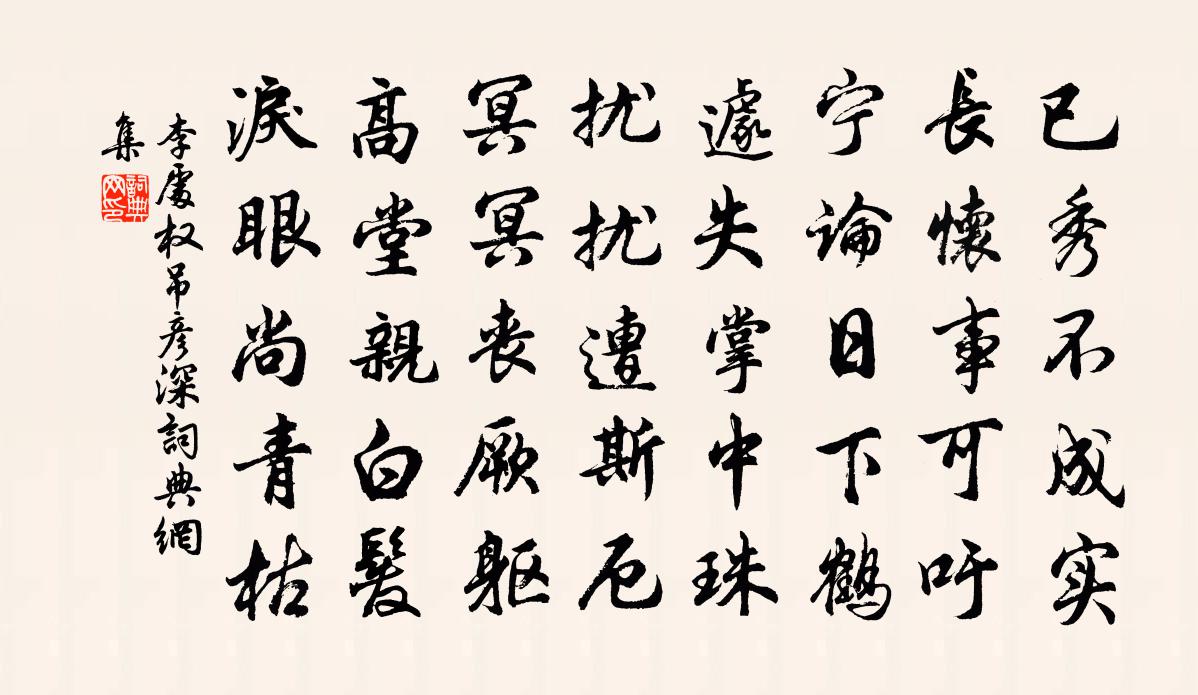 已秀不成实
長懷事可吁
宁論日下鶴
遽失掌中珠
扰扰遭斯厄
冥冥丧厥躯
高堂親白髮
淚眼尚青枯
李處权吊彦深詞典網
集
詞典
网印